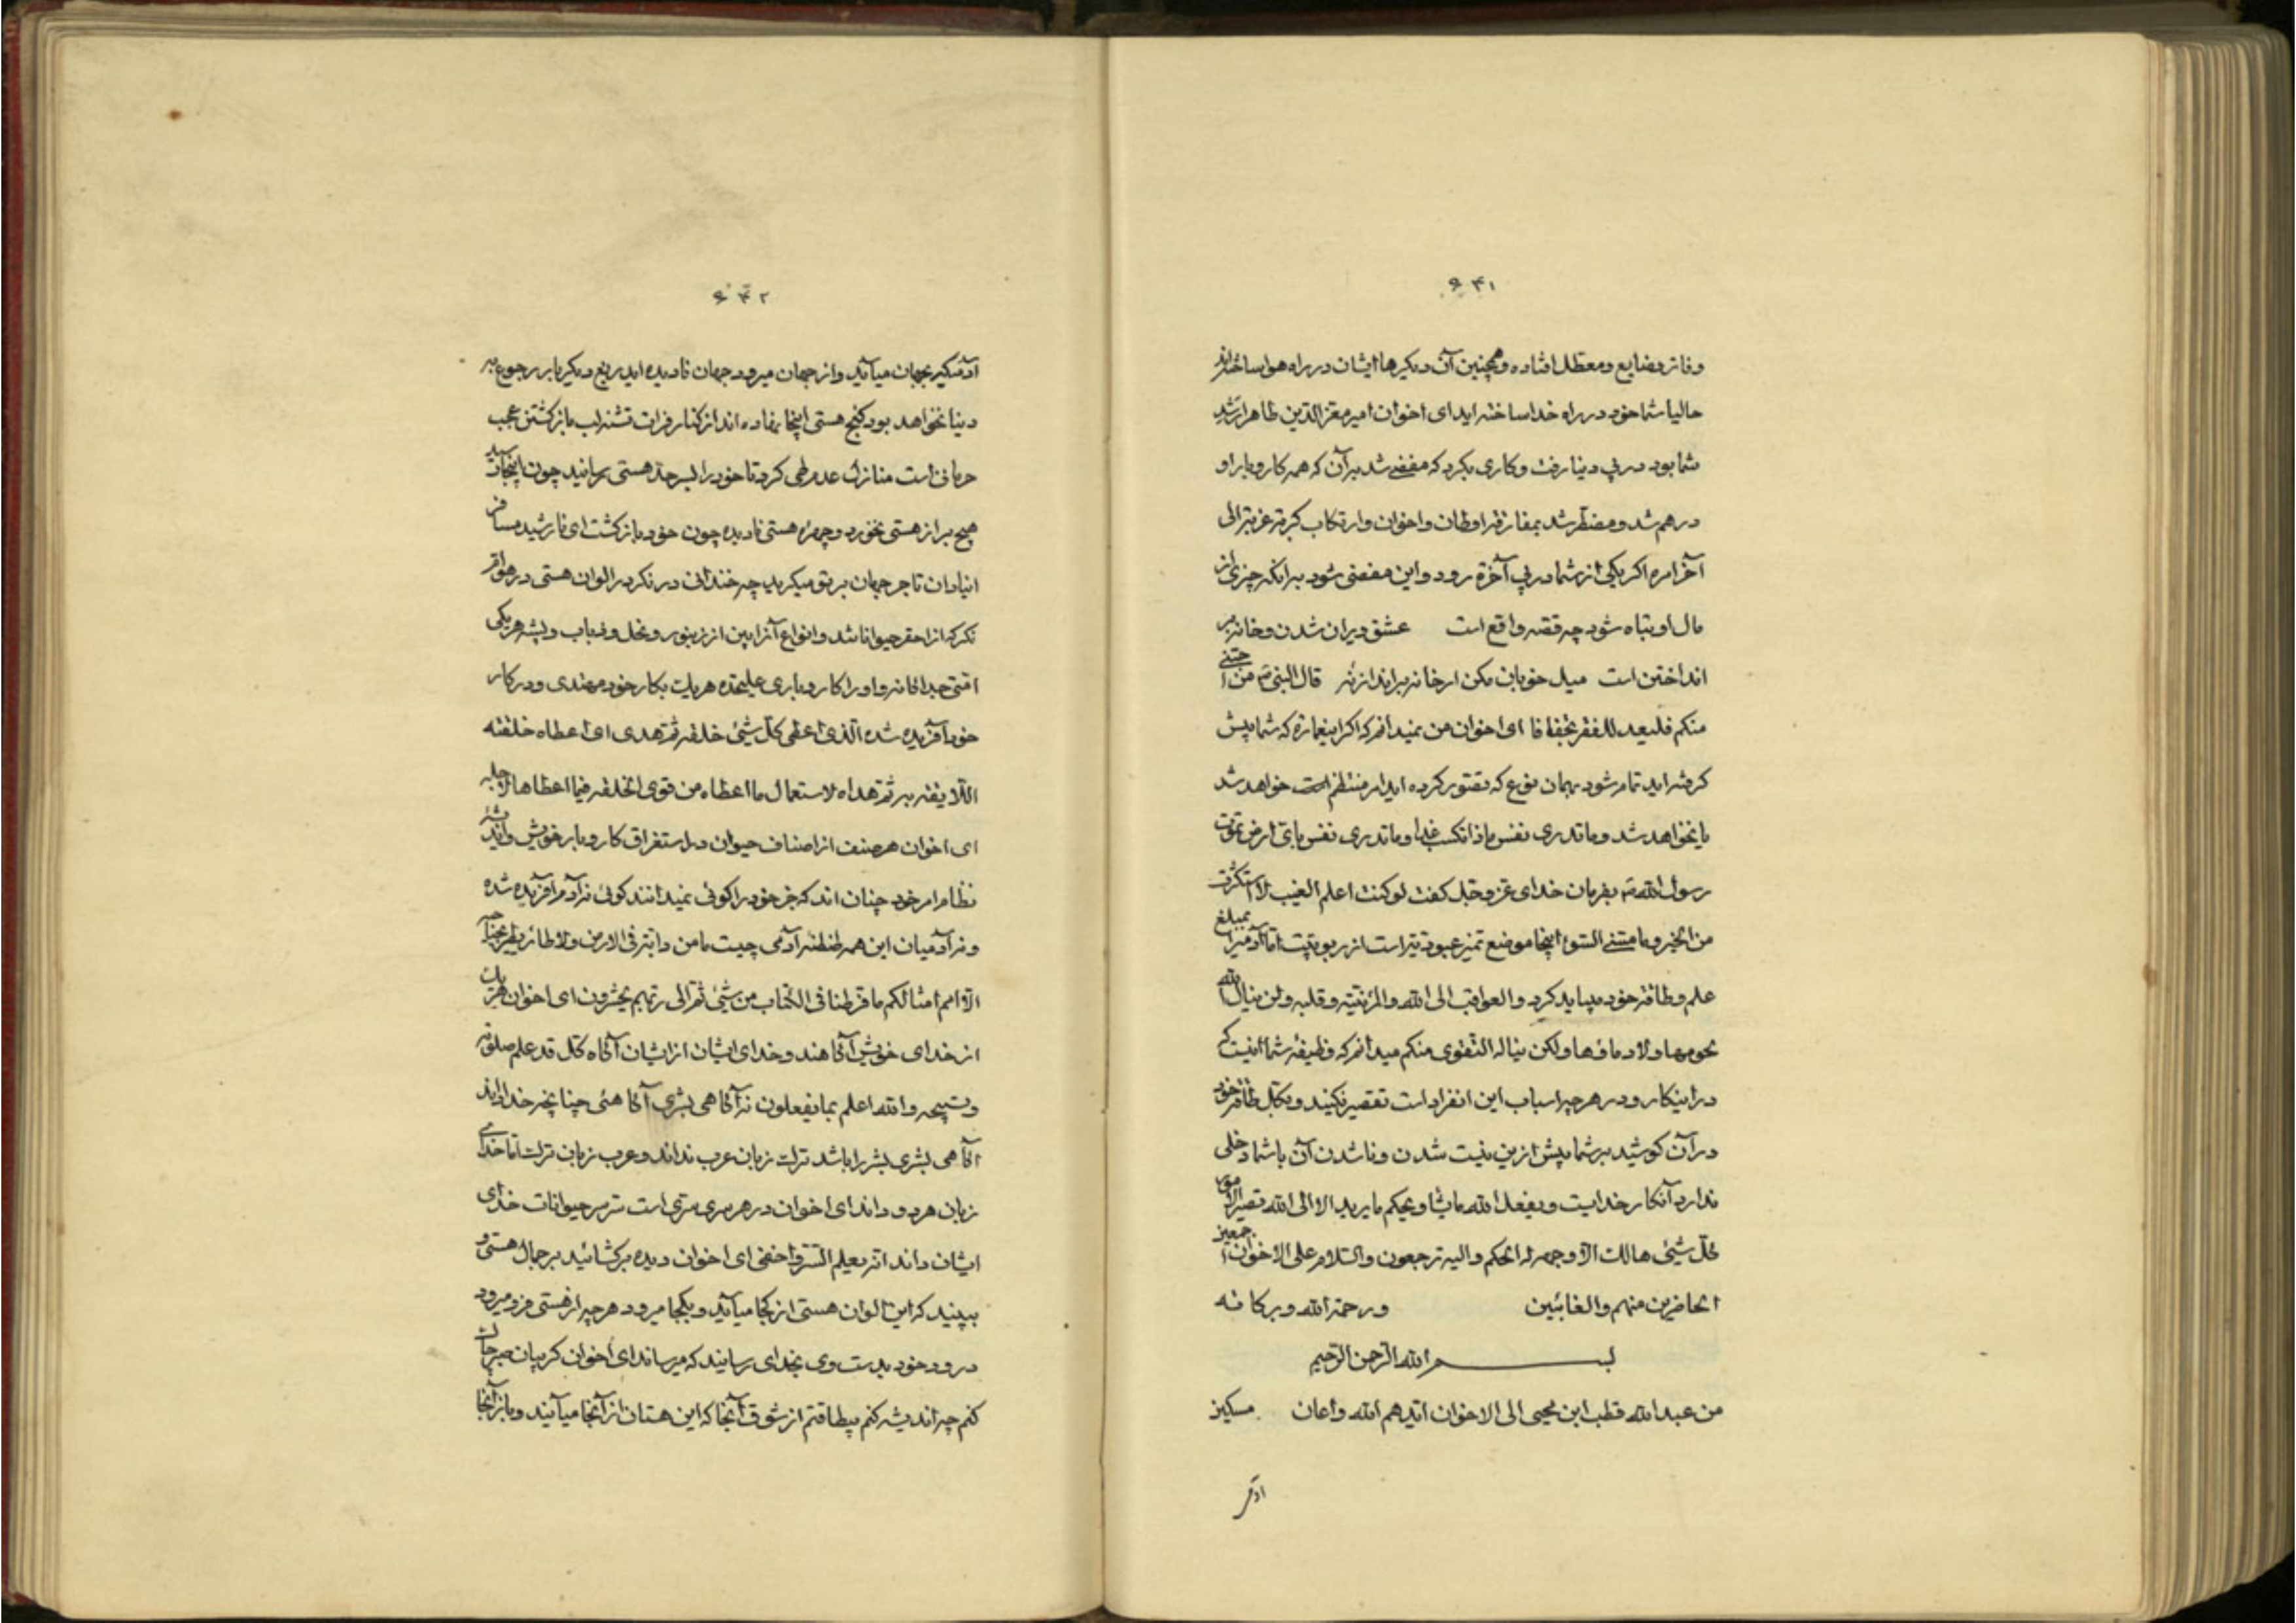 ۶۴۱
وفاتر و ضایع و معطل افتاده و همچنین آن دیگیرها ایشان در راه هوا ساخته‌اند
حالیا شما خود در راه خدا ساخته اید ای اخوان امیر معز الدین طاهر ارشد
شما بود در پی دنیا رفت و کاری بکرد که مفضی شد بر آن که همه کار و بار او
در هم شد و مضطر شد بمفارقة اوطان و اخوان و ارتکاب کربة غربة الی
آخر امره اگر یکی از شما در پی آخرة رود و این مفضی شود بر انکه چیزی از
مال او تباه شود چه قصه واقع است عشق ویران شدن و خانه بر
انداختن است میل خوبان مکن ار خانه برانداز نه قال النبی ص من احبنی
منکم فلیعد للفقر تجفافا ای اخوان من نمیدانم که اگر اینعمارة که شما پیش
گرفته اید تمام شود بهمان نوع که تصور کرده اید امر منتظم است خواهد شد
یا نخواهد شد و ما تدری نفس ماذا تکسب غدا و ما تدری نفس بای ارض تموت
رسول الله ص بفرمان خدای عز و جل گفت لو کنت اعلم الغیب لاستکثرت
من الخیر و ما مسنی السوء اینجا موضع تمیز عبودیتر است از ربوبیت اما آدمیرا بمبلغ
علم و طاقة خود میباید کرد و العواقب الی الله و المرء نیته و قلبه و لن ینال الله
لحومها و لا دماؤها و لکن یناله التقوی منکم میدانم که وظیفه شما اینست که
در اینکار و در هر چه اسباب این انفراد است تقصیر نکنید و بکل طاقة خود
در آن کوشید بر شما پیش ازین نیست شدن و ناشدن آن با شما دخلی
ندارد آنکار خدایست و یفعل الله ما یشاء و یحکم ما یرید الا الی الله تصیر الامور
کل شیئ هالک الا وجهه له الحکم و الیه ترجعون و السلام علی الاخوان اجمعین
الحاضرین منهم و الغائبین و رحمة الله و برکاته
بسم الله الرحمن الرحیم
من عبد الله قطب ابن محیی الی الاخوان ایدهم الله و اعان مسکین
آدم
۶۴۲
آدمیکه بجهان میآید و از جهان میرود جهان نادیده ایدریغ دیگر بار رجوع به
دنیا نخواهد بود گنج هستی اینجا نهاده اند از کنار فرات تشنه لب بازگشتن عجب
حرمانی است منازل عدم طی کرد تا خود را بسر حد هستی رسانید چون اینجا رسید
هیچ بر از هستی نخورد و چهره هستی نادیده چون خود بازگشت ای نارشید مسافر
ای نادان تاجر جهان بر تو میگرید چه خندانی در نگر در الوان هستی در هوام
نگر که از احقر حیوانا شد و انواع آنرا بین از زنبور و نحل و ذباب و پشه هر یکی
امتی جداگانه و او را کار و باری علیحده هر یک بکار خود مهتدی و در کار
خود آفریده شده الذی اعطی کل شیئ خلقه ثم هدی ای اعطاه خلقته
اللایقة به ثم هداه لاستعمال ما اعطاه من قوی الخلقه فیما اعطاها لاجله
ای اخوان هر صنف از اصناف حیوان در استغراق کار و بار خویش و اندیشه
نظام امر خود چنان اند که جز خود را گوئی نمیدانند گوئی نه آدم آفریده شده
و نه آدمیان این همه طنطنه آدمی چیست ما من دابة فی الارض و لا طائر یطیر بجناحیه
الا امم امثالکم ما فرطنا فی الکتاب من شیئ ثم الی ربهم یحشرون ای اخوان هر یک
از خدای خویش آگاهند و خدای ایشان از ایشان آگاه کل قد علم صلوته
و تسبیحه و الله اعلم بما یفعلون نه آگاهی بشری آگاهئی چنانچه خدا داند
آگاهی بشری بشر را باشد ترک زبان عرب نداند و عرب زبان ترک اما خدای
زبان هر دو داند ای اخوان در هر سری سری است سر سر حیوانات خدای
ایشان داند انه یعلم السر و اخفی ای اخوان دیده برگشائید بر جمال هستی و
ببینید که این الوان هستی از کجا میآید و بکجا میرود هر چه از هستی فرو میرود
درود خود بدست وی بخدای رسانید که میرساند ای اخوان گریبان صبر چاک
کنم چه اندیشه کنم بیطاقتم از شوق آنجا که این هستان از آنجا میآیند و باز آنجا